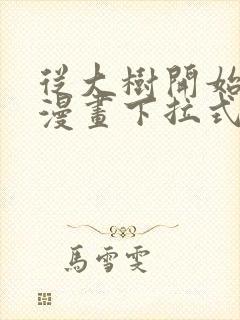 從大樹開始
漫畫下拉式
馬雪雯